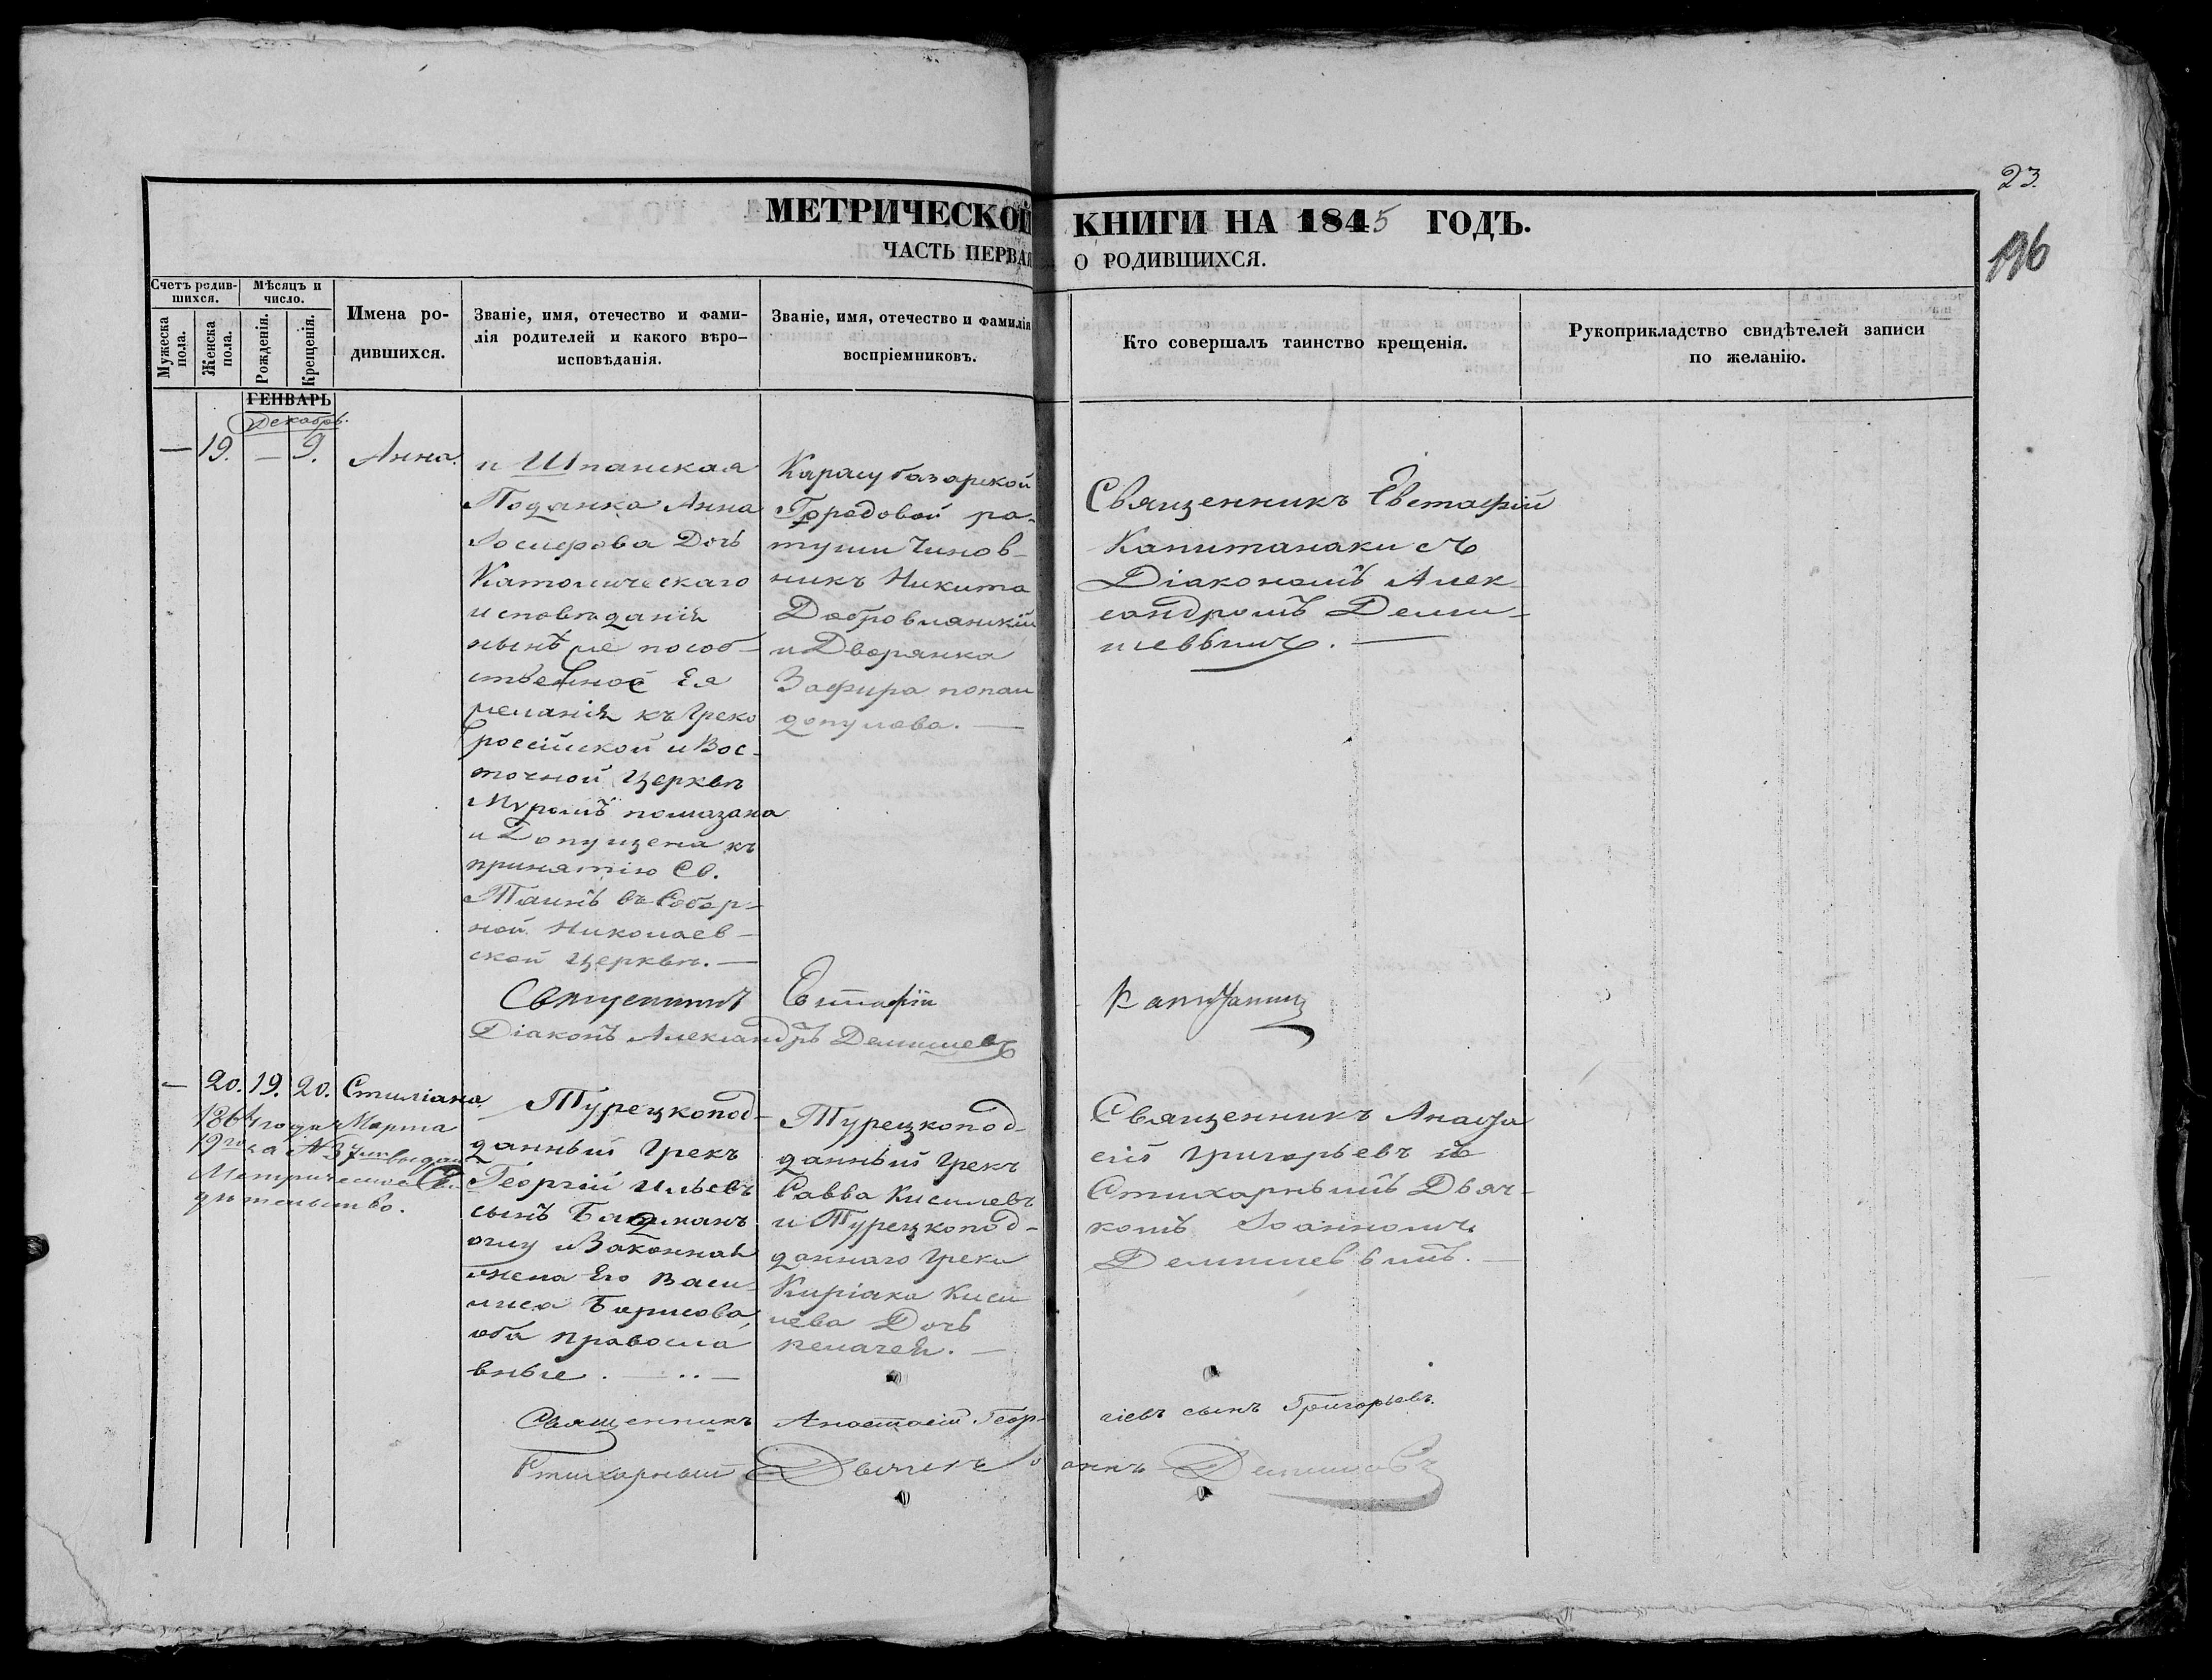 23.
196
МЕТРИЧЕСКОЙ КНИГИ НА 1845 ГОДЪ.
ЧАСТЬ ПЕРВАЯ О РОДИВШИХСЯ.
Счетъ родив-
шихся.
Мужеска
пола.
Женска
пола.
Мѣсяцъ и
число.
Рожденія.
Крещенія.
Имена ро-
дившихся.
Званіе, имя, отечество и фами-
лія родителей и какого вѣро-
исповѣданія.
Званіе, имя, отечество и фамилія
воспріемниковъ.
Кто совершалъ таинство крещенія.
Рукоприкладство свидѣтелей записи
по желанію.
ГЕНВАРЬ
Декабрь.
— 19. — 9. Анна.
и Шпанская
Поданка Анна
Іосифова Дочь
Католическаго
исповѣданія
нынѣ же по соб-
ственное Ея
желанія къ Греко
россійской и Вос-
точной Церквѣ
Мѵромъ помазана
и Допущена къ
принятію Св.
Таинъ въ Собор-
ной Николаев-
ской Церквѣ. —
Карасубазарской
Городовой ра-
туши Чинов-
никъ Никита
Добровлянскій
и Дворянка
Зафира попан
допулова. —
Священникъ Евстафій
Капитанаки съ
Діакономъ Алек-
сандромъ Деми-
шевымъ. —
Священникъ Евстафій Капитанаки
Діаконъ Александръ Демишевъ
— 20. 19. 20. Стиліана
1864 года Марта
19го за № 37мъ выдан
Метрическое Сви-
дѣтельство.
Турецкопод-
данный Грекъ
Георгій Ильевъ
сынъ
оглу и Законная
жена Его Васи-
лиса Борисова,
оба правосла
вные. — .. —
Турецкопод-
данный Грекъ
Савва Кисилевъ
и Турецкопод-
даннаго Грека
Киріака Киси
лева Дочь
Священникъ Анаста
сій Григорьевъ съ
Стихарнымъ Дьяч-
комъ Іоанномъ
Демишевымъ. —
Священникъ Анастасій Георгіевъ сынъ Григорьевъ.
Стихарный Дьячекъ Іоаннъ Демишевъ